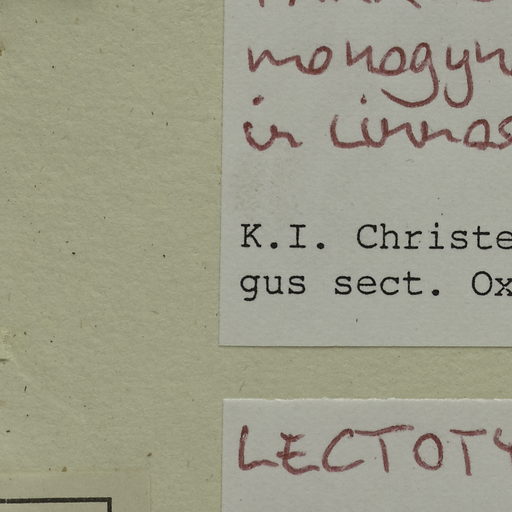 monogyn
in Linnae
K.I. Christe
gus sect. Ox
LECTOTY